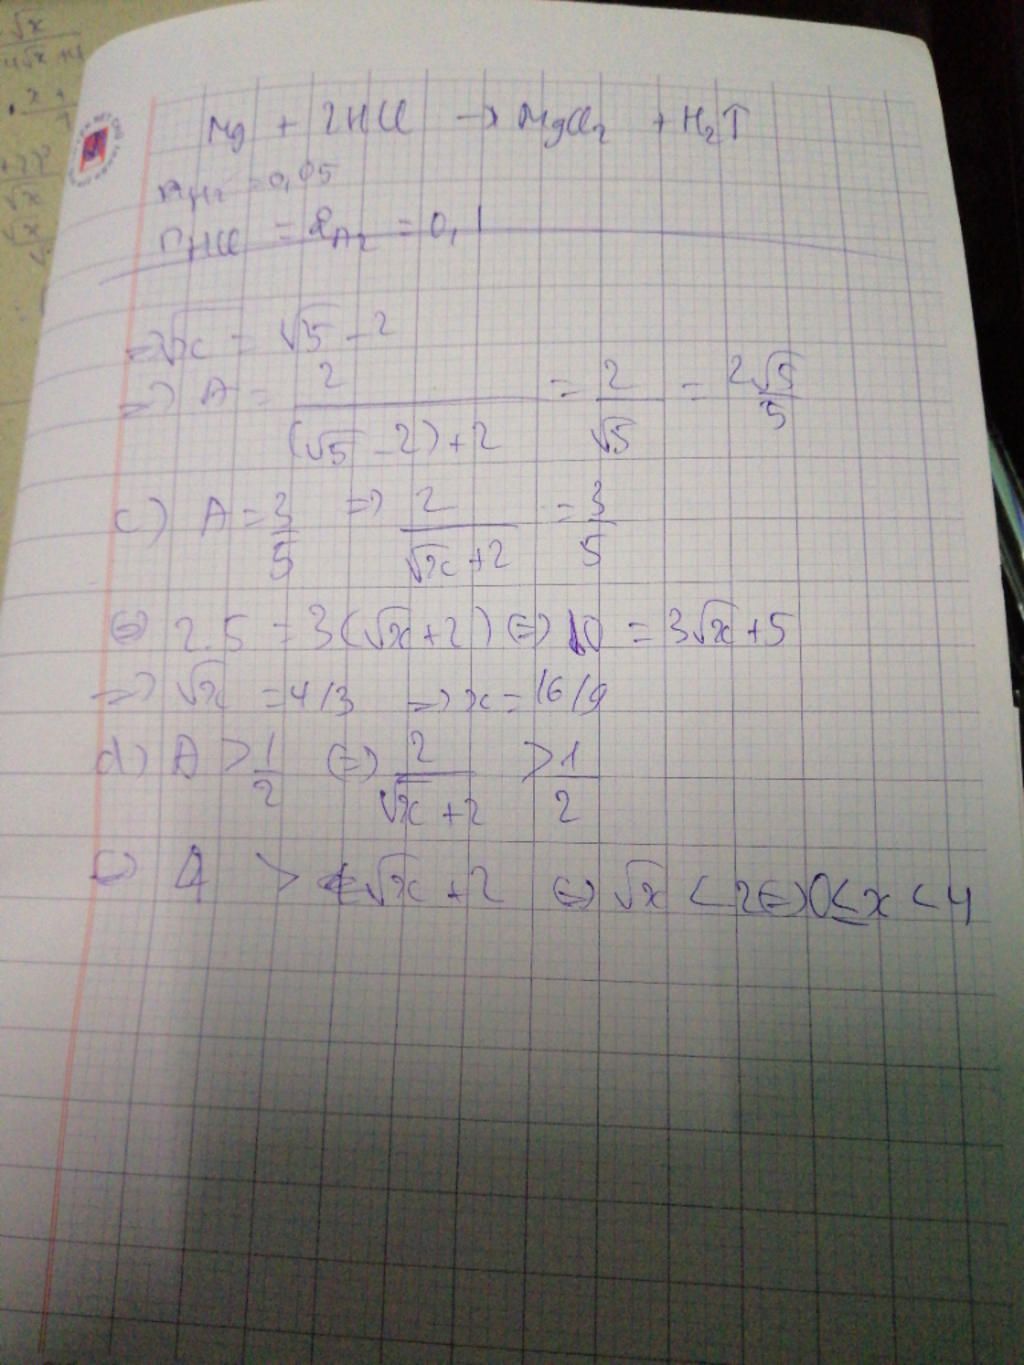 Mg + 2HCl → MgCl₂ + H₂↑
nH₂ = 0,05
nHCl = 2H₂ = 0,1
=> √x = √5 - 2
=> A = 2/((√5 - 2) + 2) = 2/√5 = 2√5/5
c) A = 3/5 => 2/(√x + 2) = 3/5
⇔ 2.5 = 3(√x + 2) ⇔ 10 = 3√x + 5
=> √x = 4/3 => x = 16/9
d) A > 1/2 ⇔ 2/(√x + 2) > 1/2
⇔ 4 > √x + 2 ⇔ √x < 2 ⇔ 0 ≤ x < 4